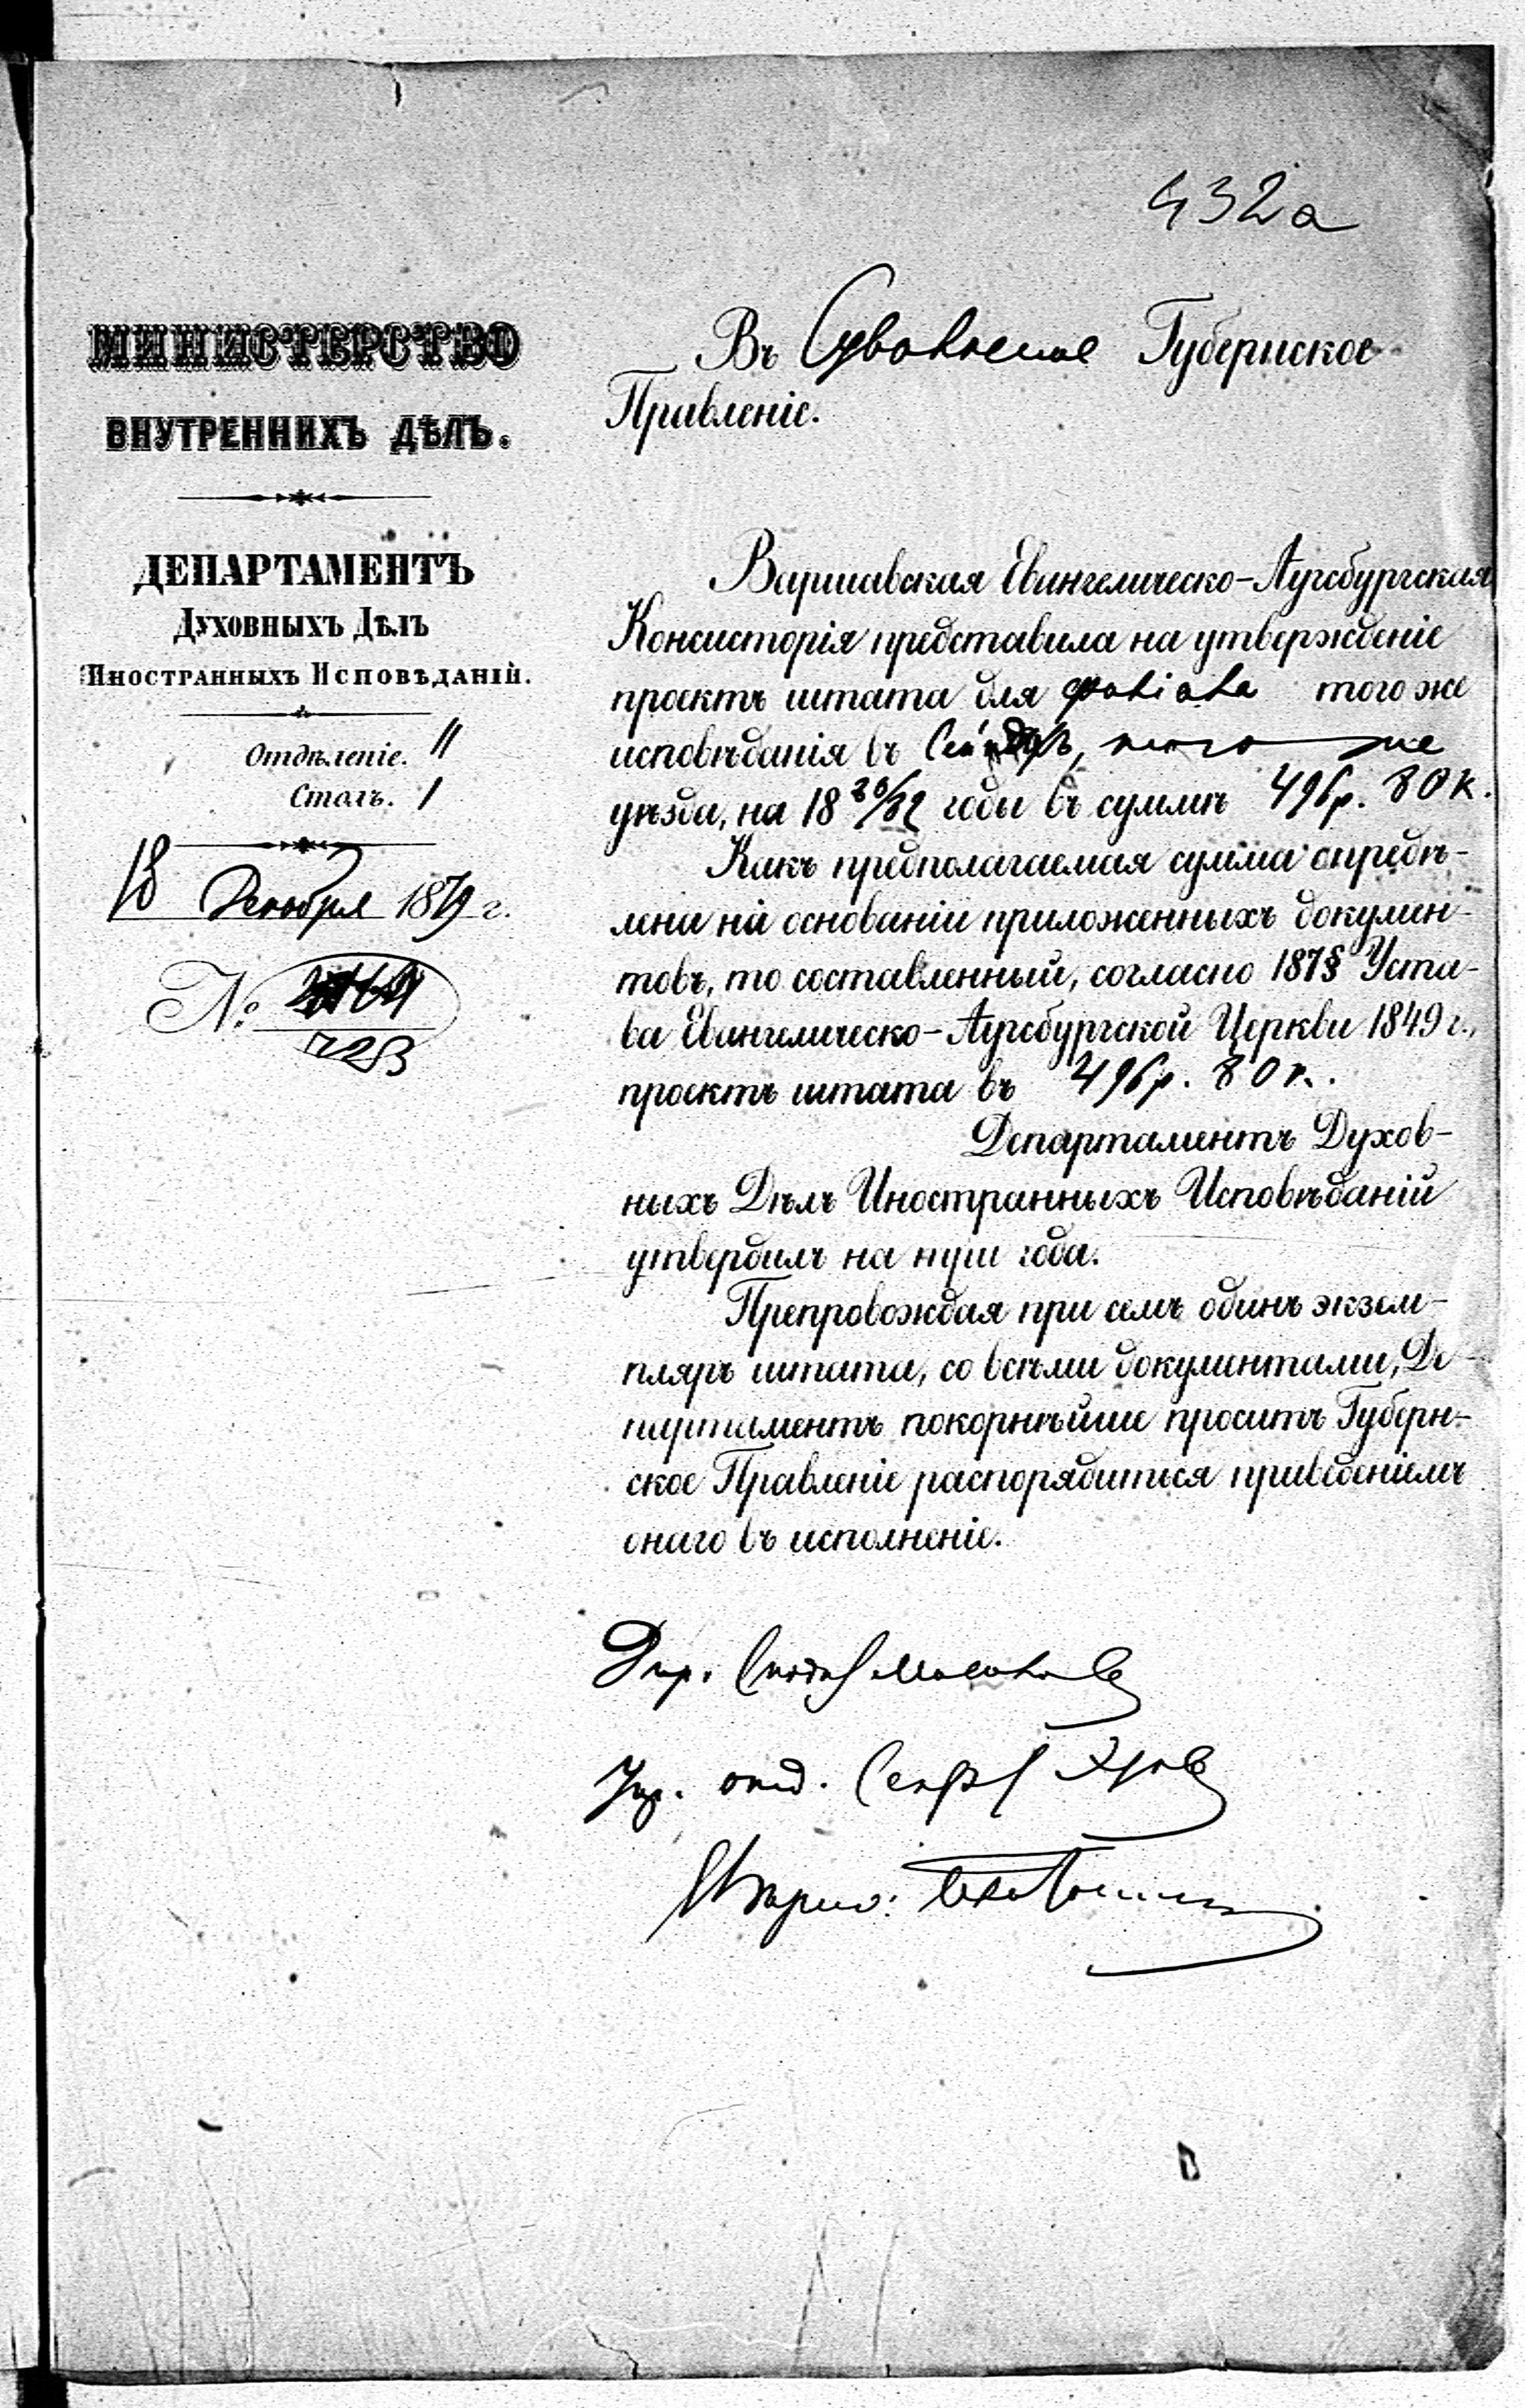 432а
МИНИСТЕРСТВО
ВНУТРЕННИХЪ ДѢЛЪ.
ДЕПАРТАМЕНТЪ
ДУХОВНЫХЪ ДѢЛЪ
ИНОСТРАННЫХЪ ИСПОВѢДАНІЙ.
Отдѣленіе. II
Столъ. 1
18 Декабря 1879 г.
№
723
Въ Сувалкское Губернское
Правленіе.
Варшавская Евангелическо-Аугсбургская
Консисторія представила на утвержденіе
проектъ штата для филіала того же
исповѣданія въ того же
уѣзда, на 1880/82 годы въ суммѣ 496 р. 80 к.
Какъ предполагаемая сумма опредѣ-
лена на основаніи приложенныхъ докумен-
товъ, то составленный, согласно 187 § Уста-
ва Евангелическо-Аугсбургской Церкви 1849 г.,
проектъ штата въ 496 р. 80 к.
Департаментъ Духов-
ныхъ Дѣлъ Иностранныхъ Исповѣданій
утвердилъ на три года.
Препровождая при семъ одинъ экзем-
пляръ штата, со всѣми документами, Де-
партаментъ покорнѣйше проситъ Губерн-
ское Правленіе распорядиться приведеніемъ
онаго въ исполненіе.
Дир.
Упр. отд.